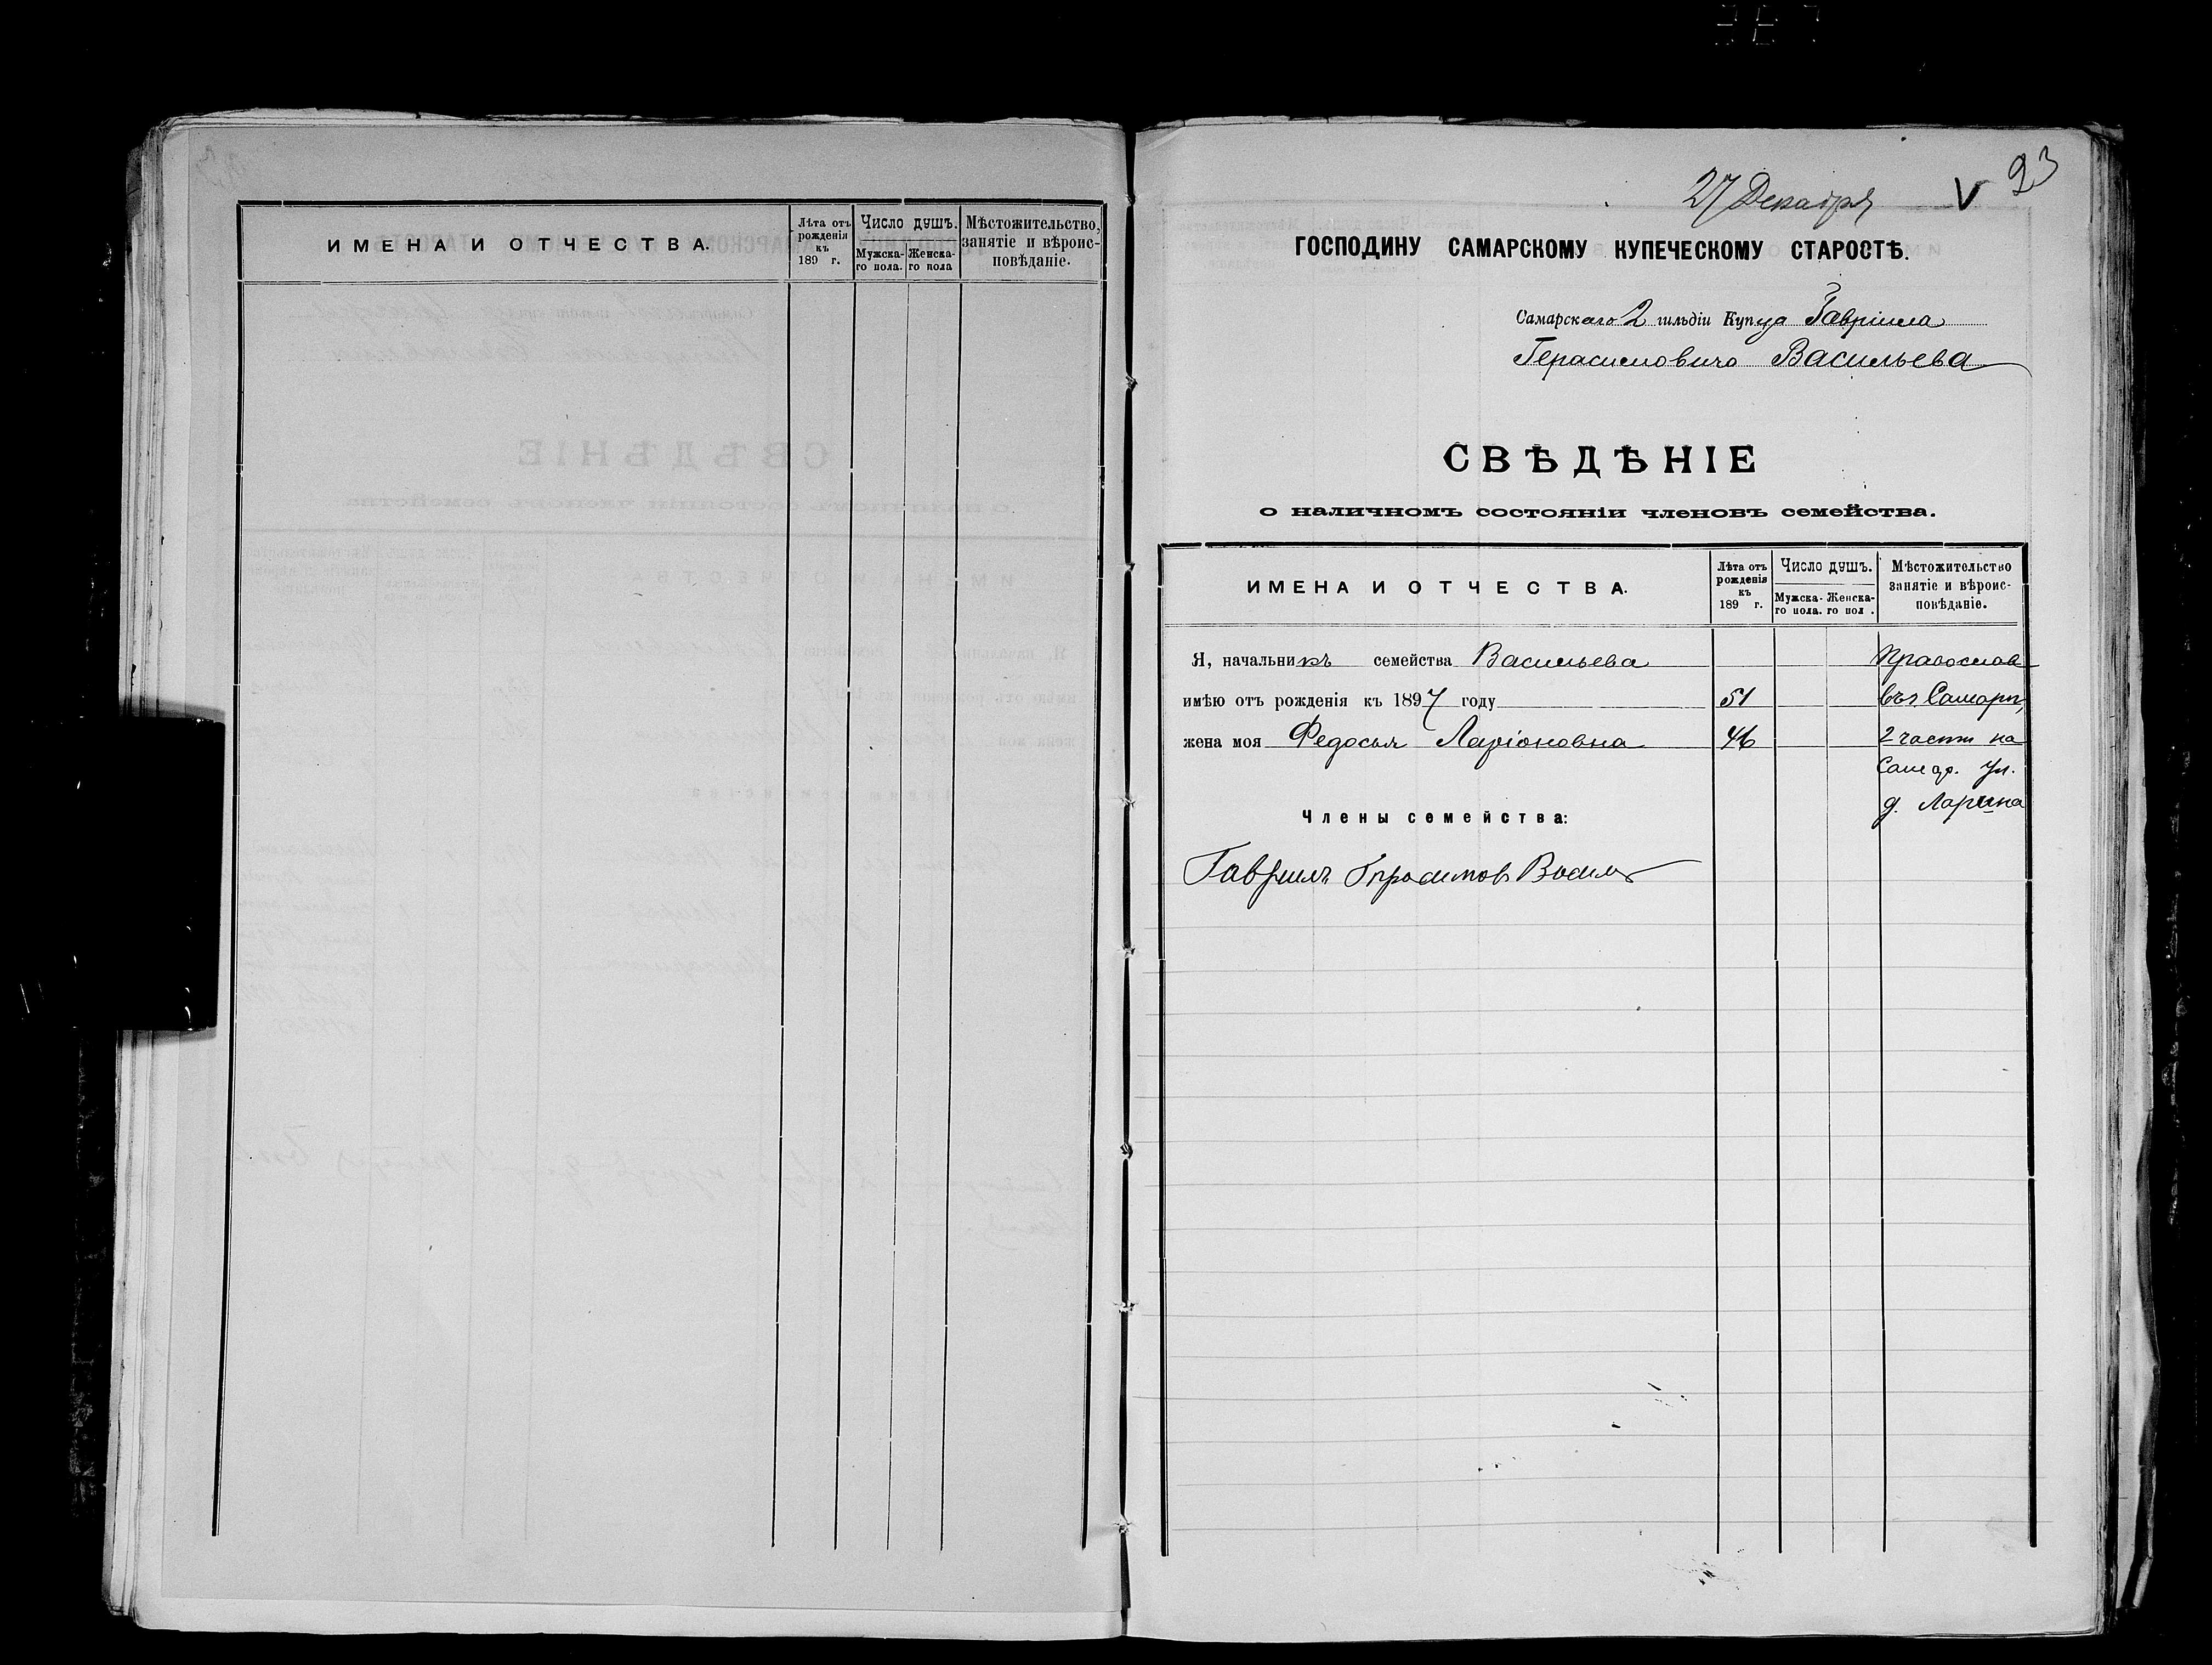 ИМЕНА И ОТЧЕСТВА.
Лѣта отъ рожденія къ 189 г.
Число душъ.
Мужска-го пола.
Женска-го пола
Мѣстожительство, занятіе и вѣроис-повѣданіе.
27 Декабря V 23
ГОСПОДИНУ САМАРСКОМУ КУПЕЧЕСКОМУ СТАРОСТѢ.
Самарскаго 2 гильдіи Купца Гавріила
Герасимовича Васильева
СВѢДѢНІЕ
о наличномъ состояніи членовъ семейства.
ИМЕНА И ОТЧЕСТВА.
Лѣта отъ рожденія къ 189 г.
Число душъ.
Мужска-го пола.
Женска-го пол .
Мѣстожительство занятіе и вѣроис-повѣданіе.
Я, начальникъ семейства Васильева Православ
имѣю отъ рожденія къ 1897 году 51 въ г. Самарѣ,
жена моя Федосья Ларіоновна 46 2 части на
Самар. ул.
д. Ларина
Члены семейства:
Гаврилъ